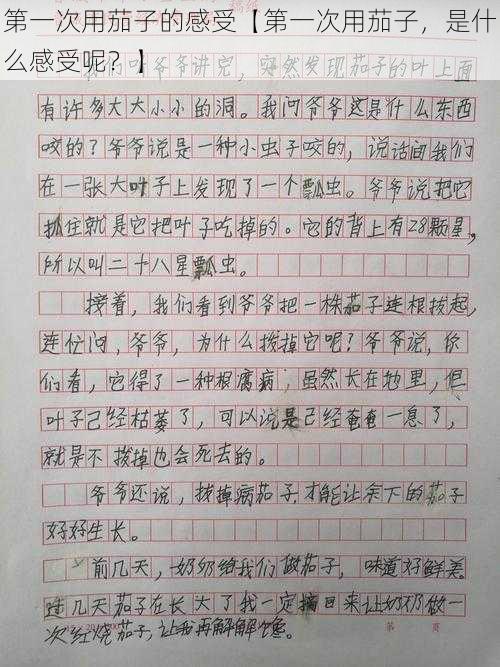 第一次用茄子的感受【第一次用茄子，是什
么感受呢？】
稿纸
们听爷爷讲完，突然发现茄子的叶上面
有许多大大小小的洞。我问爷爷这是什么东西
咬的？爷爷说是一种小虫子咬的，说话间我们
在一张大叶子上发现了一个瓢虫。爷爷说把它
抓住就是它把叶子吃掉的。它的背上有28颗星，
所以叫二十八星瓢虫。
接着，我们看到爷爷把一株茄子连根拔起，
连忙问，爷爷，为什么拔掉它呢？爷爷说，你
们看，它得了一种根腐病；虽然长在地里，但
叶子己经枯萎了，可以说是己经奄奄一息了，
就是不拔掉也会死去的。
爷爷还说，拔掉病茄子，才能让余下的茄子
好好生长。
前几天，奶奶给我们做茄子，味道好鲜美。
过几天茄子在长大了我一定摘回来让奶奶做一
次红烧茄子，让我再解解馋。
第 页